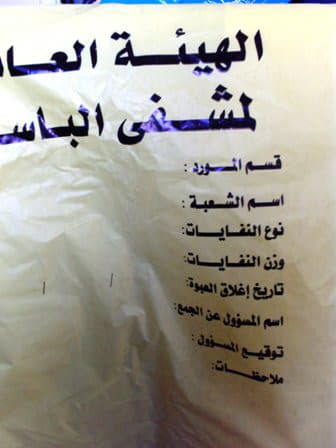 الهيئة
لمشفى
قسم المورد :
اسم الشعبة :
نوع النفايات:
وزن النفايات:
تاريخ إغلاق العبوة:
اسم المسؤول عن الجمع:
توقيع المسؤول :
ملاحظات: